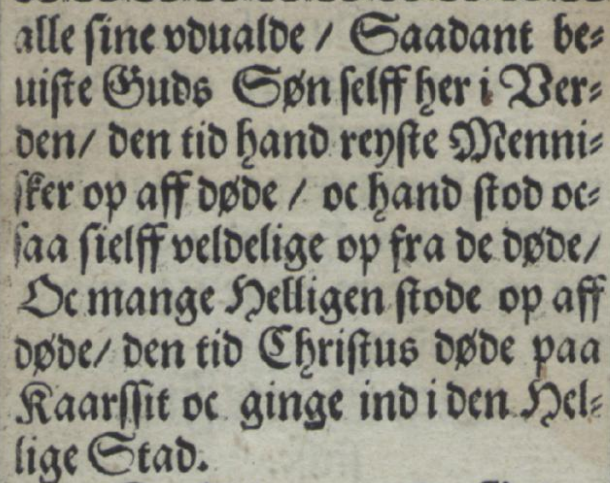 alle sine vdualde / Saadant be-
uiste Guds Søn selff her i Ver-
den/ den tid hand reyste Menni-
sker op aff døde / oc hand stod oc-
saa sielff veldelige op fra de døde/
Oc mange Helligen stode op aff
døde/ den tid Christus døde paa
Kaarssit oc ginge ind i den Hel-
lige Stad.